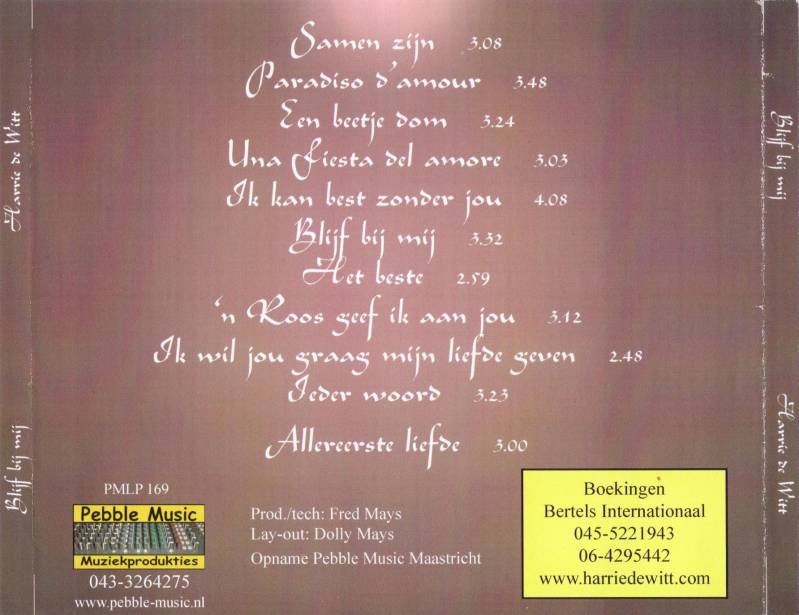 Samen zijn 3.08
Paradiso d'amour 3.48
Een beetje dom 3.24
Una Fiesta del amore 3.03
Ik kan best zonder jou 4.08
Blijf bij mij 3.32
Het beste 2.59
'n Roos geef ik aan jou 3.12
Ik wil jou graag mijn liefde geven 2.48
Ieder woord 3.23
Allereerste liefde 3.00
Harrie de Witt
Blijf bij mij
Blijf bij mij
Harrie de Witt
PMLP 169
Pebble Music
Muziekprodukties
043-3264275
www.pebble-music.nl
Prod./tech: Fred Mays
Lay-out: Dolly Mays
Opname Pebble Music Maastricht
Boekingen
Bertels Internationaal
045-5221943
06-4295442
www.harriedewitt.com